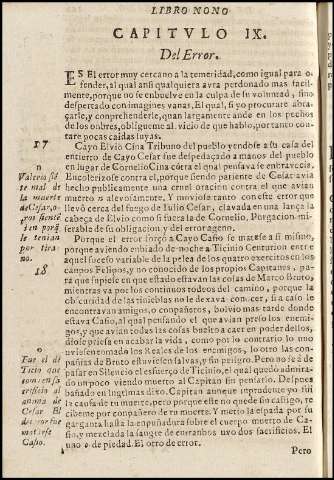 LIBRO NONO
CAPITVLO IX.
Del Error.
ES El error muy cercano a la temeridad, como igual para o
fender, al qual ansi qualquiera avra perdonado mas facil-
mente, porque no se enbuelve en la culpa de su voluntad, sino
despertado con imagines vanas. El qual, si yo procurare abra-
çarle, y conprehenderle, quan largamente ande en los pechos
de los onbres, obligueme al vicio de que hablo, portanto con-
tare pocas caidas suyas.
17
Cayo Elvio Cina Tribuno del pueblo yendose a su casa del
entierro de Cayo Cesar fue despeçado a manos del pueblo
n
en lugar de Cornelio Cina cótra el qual pensava se enbravecia.
Valerio siē
Encolerizose contra el, porque siendo pariente de Cesar avia
te mal de
hecho publicamente una cruel oracion contra el que avian
la muerte
muerto alevosamente, y movido tanto con este error que
de Cesar, o-
llevó cerca del fuego de Iulio Cesar, clavada en una lança la
cabeça de Elvio como si fuera la de Cornelio. Purgacion mi-
le tenian
serable de su obligacion y del error ageno.
por tira
Porque el error forçó a Cayo Casio se matase a si mismo,
no.
porque aviendo enbiado de noche a Ticinio Centurion entre
18
aquel suceso variable de la pelea de los quatro exercitos en los
campos Felipos, y no conocido de los propios Capitanes, pa
ra que supiese en que estado estavan las cosas de Marco Bruto,
mientras va por los continuos rodeos del camino, porque la
obscuridad de las tinieblas no le dexava conocer, si a caso le
encontravan amigos, o conpañeros, bolvio mas tarde donde
o
estava Casio, al qual pensando el que avian preso los enemi-
Fue el de
gos, y que avian todas las cosas buelto a caer en poder dellos,
Ticio que
diose priesa en acabar la vida, como por lo contrario lo mo
viesen tomados los Reales de los enemigos, lo otro las con-
pañias de Bruto estuviesen salvas, y sin peligro. Pero no se a de
anima de
pasar en Silencio el esfuerço de Ticinio, el qual quedó admira-
Cesar. El
do un poco viendo muerto al Capitan sin pensarlo. Despues
bañado en lagrimas dixo. Capitan aunque inprudente yo fui
la causa de tu muerte, pero porque este no quede sin castigo, re
cibeme por conpañero de tu muerte. Y metio la espada por su
Casio.
garganta hasta la enpuñadura sobre el cuerpo muerto de Ca-
sio, y mezclada la sangre de entranbos uvo dos sacrificios. El
uno de piedad. El otro de error.
Pero